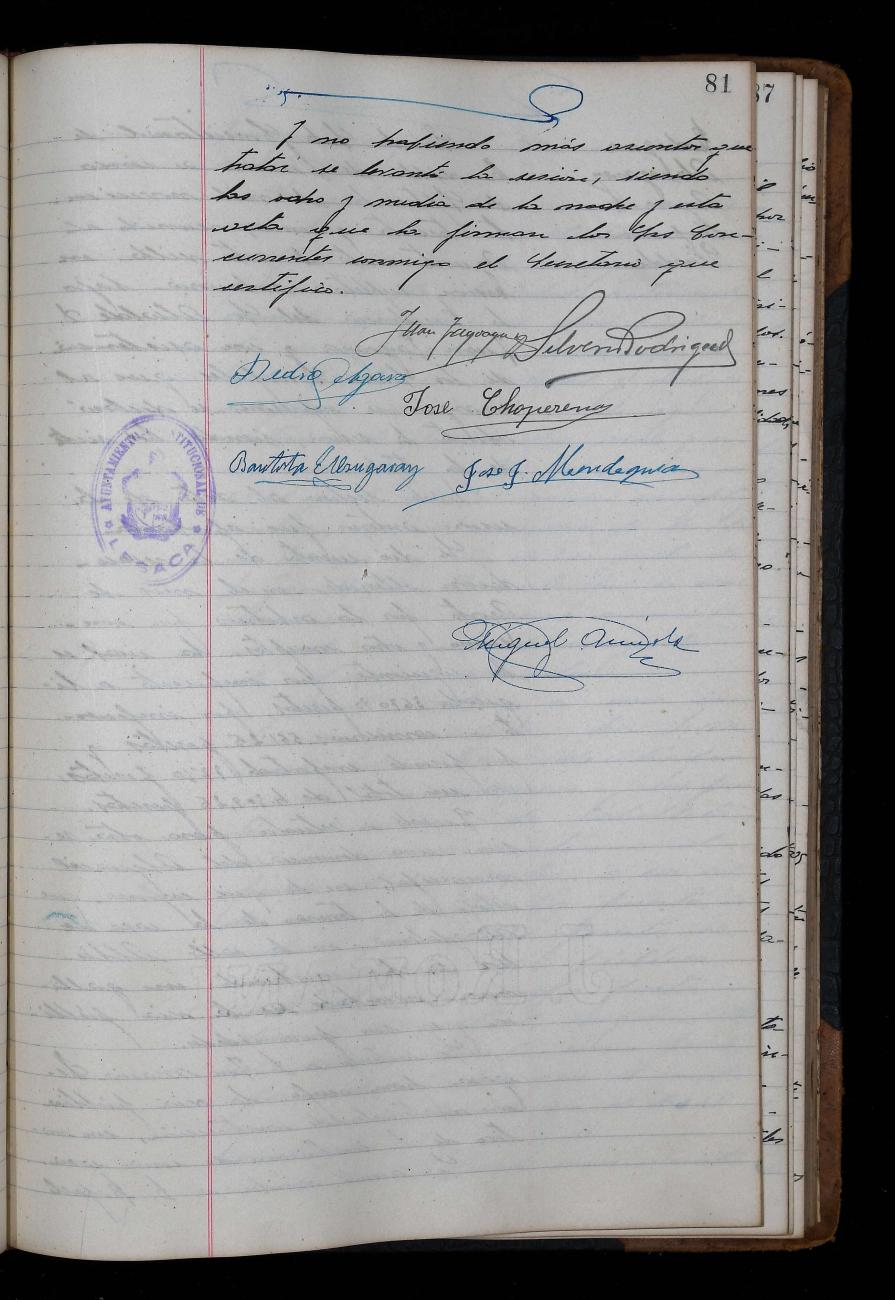 81
Y no habiendo más asuntos que
tratar se levantó la sesión, siendo
las ocho y media de la noche y esta
acta que la firman los Srs Con-
currentes conmigo el Secretario que
certifico.
Juan
Silverio Rodriguez
Pedro
Jose Choperena
Bautista Elzugaray
Jose J. Mendeguia
AYUNTAMIENTO CONSTITUCIONAL DE
LESACA
Miguel
87